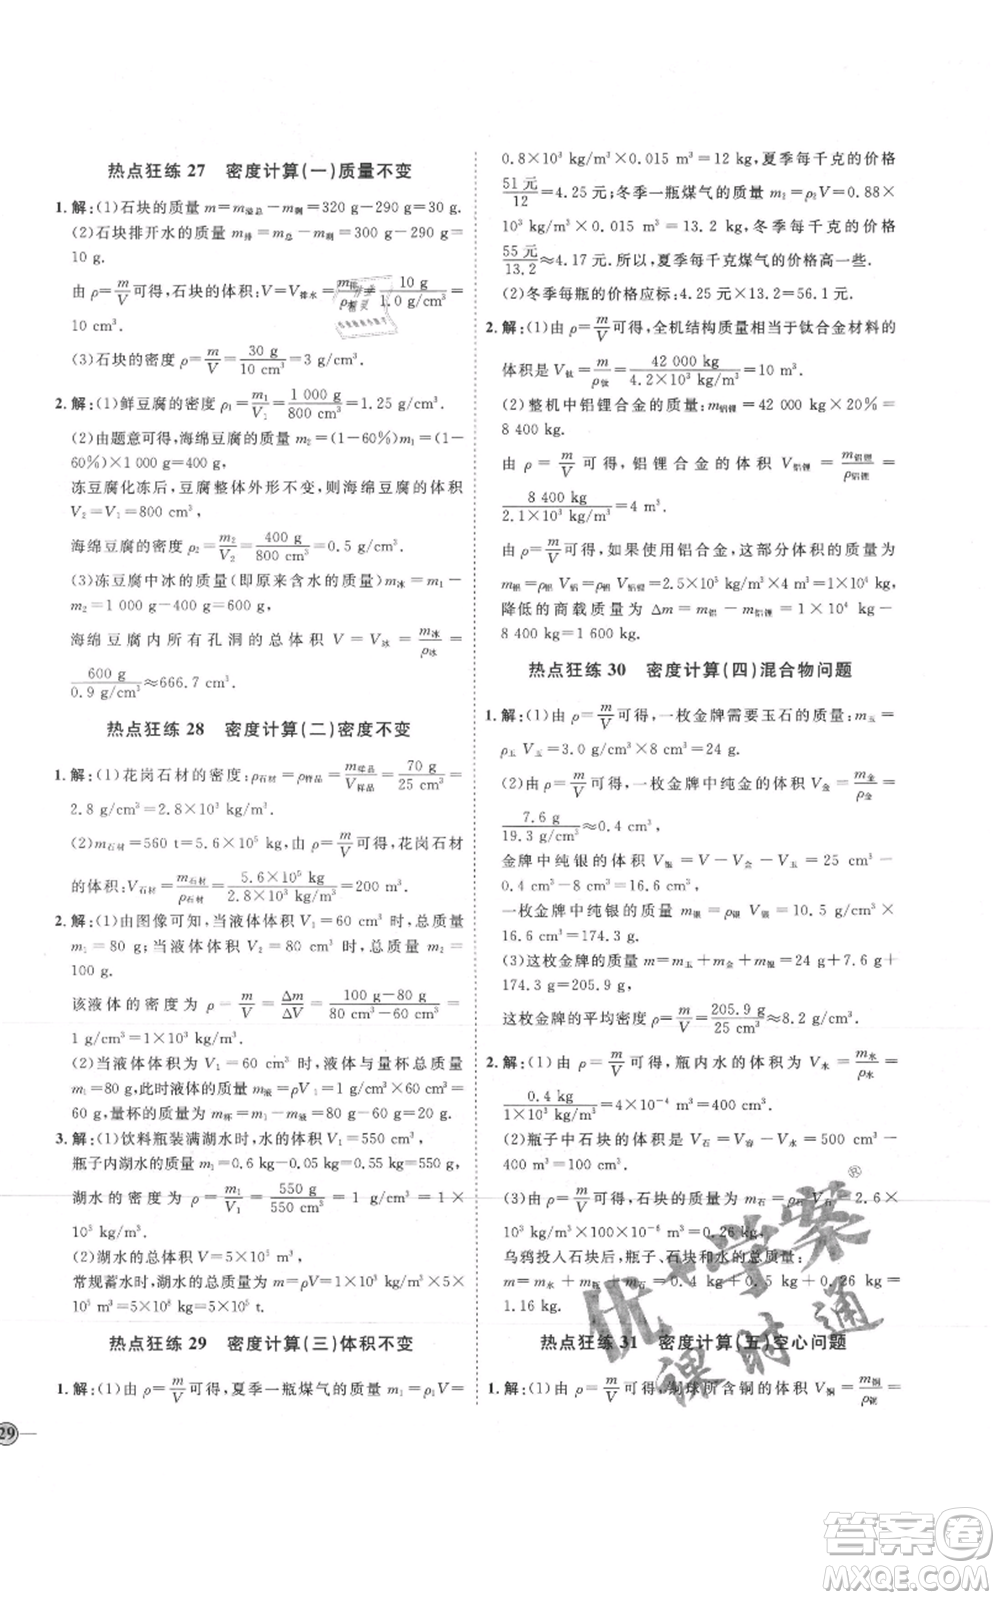 热点狂练 27　密度计算(一)质量不变
1. 解:(1)石块的质量 m=m溢总-m剩=320 g-290 g=30 g.
(2)石块排开水的质量 m排=m总-m剩=300 g-290 g=
10 g.
由 ρ=m/V 可得,石块的体积:V=V排水=m排/ρ水=10 g/1.0 g/cm³=
(3)石块的密度 ρ=m/V=30 g/10 cm³=3 g/cm³.
2. 解:(1)鲜豆腐的密度 ρ₁=m₁/V₁=1 000 g/800 cm³=1.25 g/cm³.
(2)由题意可得,海绵豆腐的质量 m₂=(1-60%)m₁=(1-
60%)×1 000 g=400 g,
冻豆腐化冻后,豆腐整体外形不变,则海绵豆腐的体积
V₂=V₁=800 cm³,
海绵豆腐的密度 ρ₂=m₂/V₂=400 g/800 cm³=0.5 g/cm³.
(3)冻豆腐中冰的质量(即原来含水的质量)m冰=m₁-
m₂=1 000 g-400 g=600 g,
海绵豆腐内所有孔洞的总体积 V=V冰=m冰/ρ冰=
600 g/0.9 g/cm³≈666.7 cm³.
热点狂练 28　密度计算(二)密度不变
1. 解:(1)花岗石材的密度:ρ石材=ρ样品=m样品/V样品=70 g/25 cm³=
2.8 g/cm³=2.8×10³ kg/m³.
(2)m石材=560 t=5.6×10⁵ kg,由 ρ=m/V 可得,花岗石材
的体积:V石材=m石材/ρ石材=5.6×10⁵ kg/2.8×10³ kg/m³=200 m³.
2. 解:(1)由图像可知,当液体体积 V₁=60 cm³ 时,总质量
m₁=80 g;当液体体积 V₂=80 cm³ 时,总质量 m₂=
100 g.
该液体的密度为 ρ=m/V=Δm/ΔV=100 g-80 g/80 cm³-60 cm³=
1 g/cm³=1×10³ kg/m³.
(2)当液体体积为 V₁=60 cm³ 时,液体与量杯总质量
m₁=80 g,此时液体的质量 m液=ρV₁=1 g/cm³×60 cm³=
60 g,量杯的质量 m杯=m₁-m液=80 g-60 g=20 g.
3. 解:(1)饮料瓶装满湖水时,水的体积 V₁=550 cm³,
瓶子内湖水的质量 m₁=0.6 kg-0.05 kg=0.55 kg=550 g,
湖水的密度为 ρ=m₁/V₁=550 g/550 cm³=1 g/cm³=1×
10³ kg/m³.
(2)湖水的总体积 V=5×10⁶ m³,
常规蓄水时,湖水的总质量为 m=ρV=1×10³ kg/m³×5×
10⁶ m³=5×10⁹ kg=5×10⁶ t.
热点狂练 29　密度计算(三)体积不变
1. 解:(1)由 ρ=m/V 可得,夏季一瓶煤气的质量 m₁=ρ₁V=
0.8×10³ kg/m³×0.015 m³=12 kg,夏季每千克的价格
51元/12=4.25 元;冬季一瓶煤气的质量 m₂=ρ₂V=0.88×
10³ kg/m³×0.015 m³=13.2 kg,冬季每千克的价格
55元/13.2≈4.17 元.所以,夏季每千克煤气的价格高一些.
(2)冬季每瓶的价格应标:4.25×13.2=56.1 元.
2. 解:(1)由 ρ=m/V 可得,全机结构质量相当于钛合金材料的
体积是 V钛=m/ρ钛=42 000 kg/4.2×10³ kg/m³=10 m³.
(2)整机中铝锂合金的质量:m铝锂=42 000 kg×20%=
8 400 kg.
由 ρ=m/V 可得,铝锂合金的体积 V铝锂=m铝锂/ρ铝锂=
8 400 kg/2.1×10³ kg/m³=4 m³.
由 ρ=m/V 可得,如果使用铝合金,这部分体积的质量为
m铝=ρ铝V铝锂=2.5×10³ kg/m³×4 m³=1×10⁴ kg,
降低的商载质量为 Δm=m铝-m铝锂=1×10⁴ kg-
8 400 kg=1 600 kg.
热点狂练 30　密度计算(四)混合物问题
1. 解:(1)由 ρ=m/V 可得,一枚金牌需要玉石的质量:m玉=
ρ玉V玉=3.0 g/cm³×8 cm³=24 g.
(2)由 ρ=m/V 可得,一枚金牌中纯金的体积 V金=m金/ρ金=
7.6 g/19.3 g/cm³≈0.4 cm³,
金牌中纯银的体积 V银=V-V金-V玉=25 cm³-
0.4 cm³-8 cm³=16.6 cm³,
一枚金牌中纯银的质量 m银=ρ银V银=10.5 g/cm³×
16.6 cm³=174.3 g.
(3)这枚金牌的质量 m=m玉+m金+m银=24 g+7.6 g+
174.3 g=205.9 g,
这枚金牌的平均密度 ρ=m/V=205.9 g/25 cm³≈8.2 g/cm³.
2. 解:(1)由 ρ=m/V 可得,瓶内水的体积为 V水=m水/ρ水=
0.4 kg/1×10³ kg/m³=4×10⁻⁴ m³=400 cm³.
(2)瓶子中石块的体积为 V石=V容-V水=500 cm³-
400 cm³=100 cm³.
(3)由 ρ=m/V 可得,石块的质量为 m石=ρ石V石=2.6×
10³ kg/m³×100×10⁻⁶ m³=0.26 kg,
乌鸦投入石块后,瓶子、石块和水的总质量:
m=m水+m石+m瓶=0.4 kg+0.26 kg+0.5 kg=
1.16 kg.
热点狂练 31　密度计算(五)空心问题
1. 解:(1)由 ρ=m/V 可得,铜球所含铜的体积为 V铜=m铜/ρ铜=
29
优+学案
课时通
答案卷
MXQE.COM